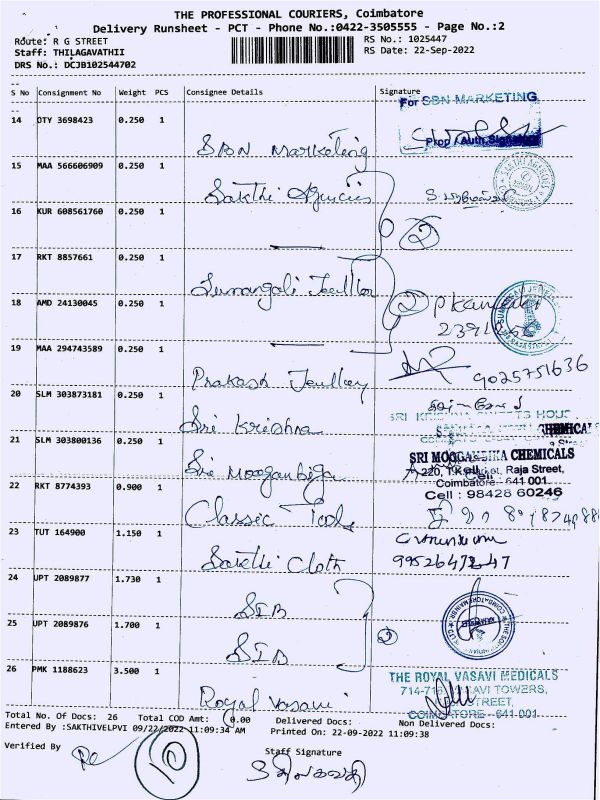 THE PROFESSIONAL COURIERS, Coimbatore
Delivery Runsheet - PCT - Phone No.:0422-3505555 - Page No.:2
Route: R G STREET
RS No.: 1025447
Staff: THILAGAVATHII
RS Date: 22-Sep-2022
DRS No.: DCJB102544702
S No Consignment No Weight PCS Consignee Details Signature
For SBN MARKETING
14 OTY 3698423 0.250 1
Prop / Auth Signatory
SBN Marketing
15 MAA 566606909 0.250 1
Sakthi Agencies
16 KUR 608561760 0.250 1
2
17 RKT 8857661 0.250 1
Sumangali Jewellery
18 AMD 24130045 0.250 1
2
19 MAA 294743589 0.250 1
9025751636
Prakash Jewllery
20 SLM 303873181 0.250 1
SRI KRISHNA SWEETS HOUSE
Sri Krishna
21 SLM 303800136 0.250 1
SRI MOOGAMBIKA CHEMICALS
220, T.K. Market, Raja Street,
Coimbatore - 641 001.
Cell : 98428 60246
Sri Mooganbiga
22 RKT 8774393 0.900 1
Classic Tools
23 TUT 164900 1.150 1
9952647247
Sakthi Cloth
24 UPT 2089877 1.730 1
SIB
25 UPT 2089876 1.700 1
2
SIB
26 PMK 1188623 3.500 1
THE ROYAL VASAVI MEDICALS
VASAVI TOWERS,
STREET,
COIMBATORE - 641 001
Royal Vasavi
Total No. Of Docs: 26 Total COD Amt: 0.00 Delivered Docs: Non Delivered Docs:
Entered By :SAKTHIVELPVI 09/22/2022 11:09:34 AM Printed On: 22-09-2022 11:09:38
Verified By
Staff Signature
10